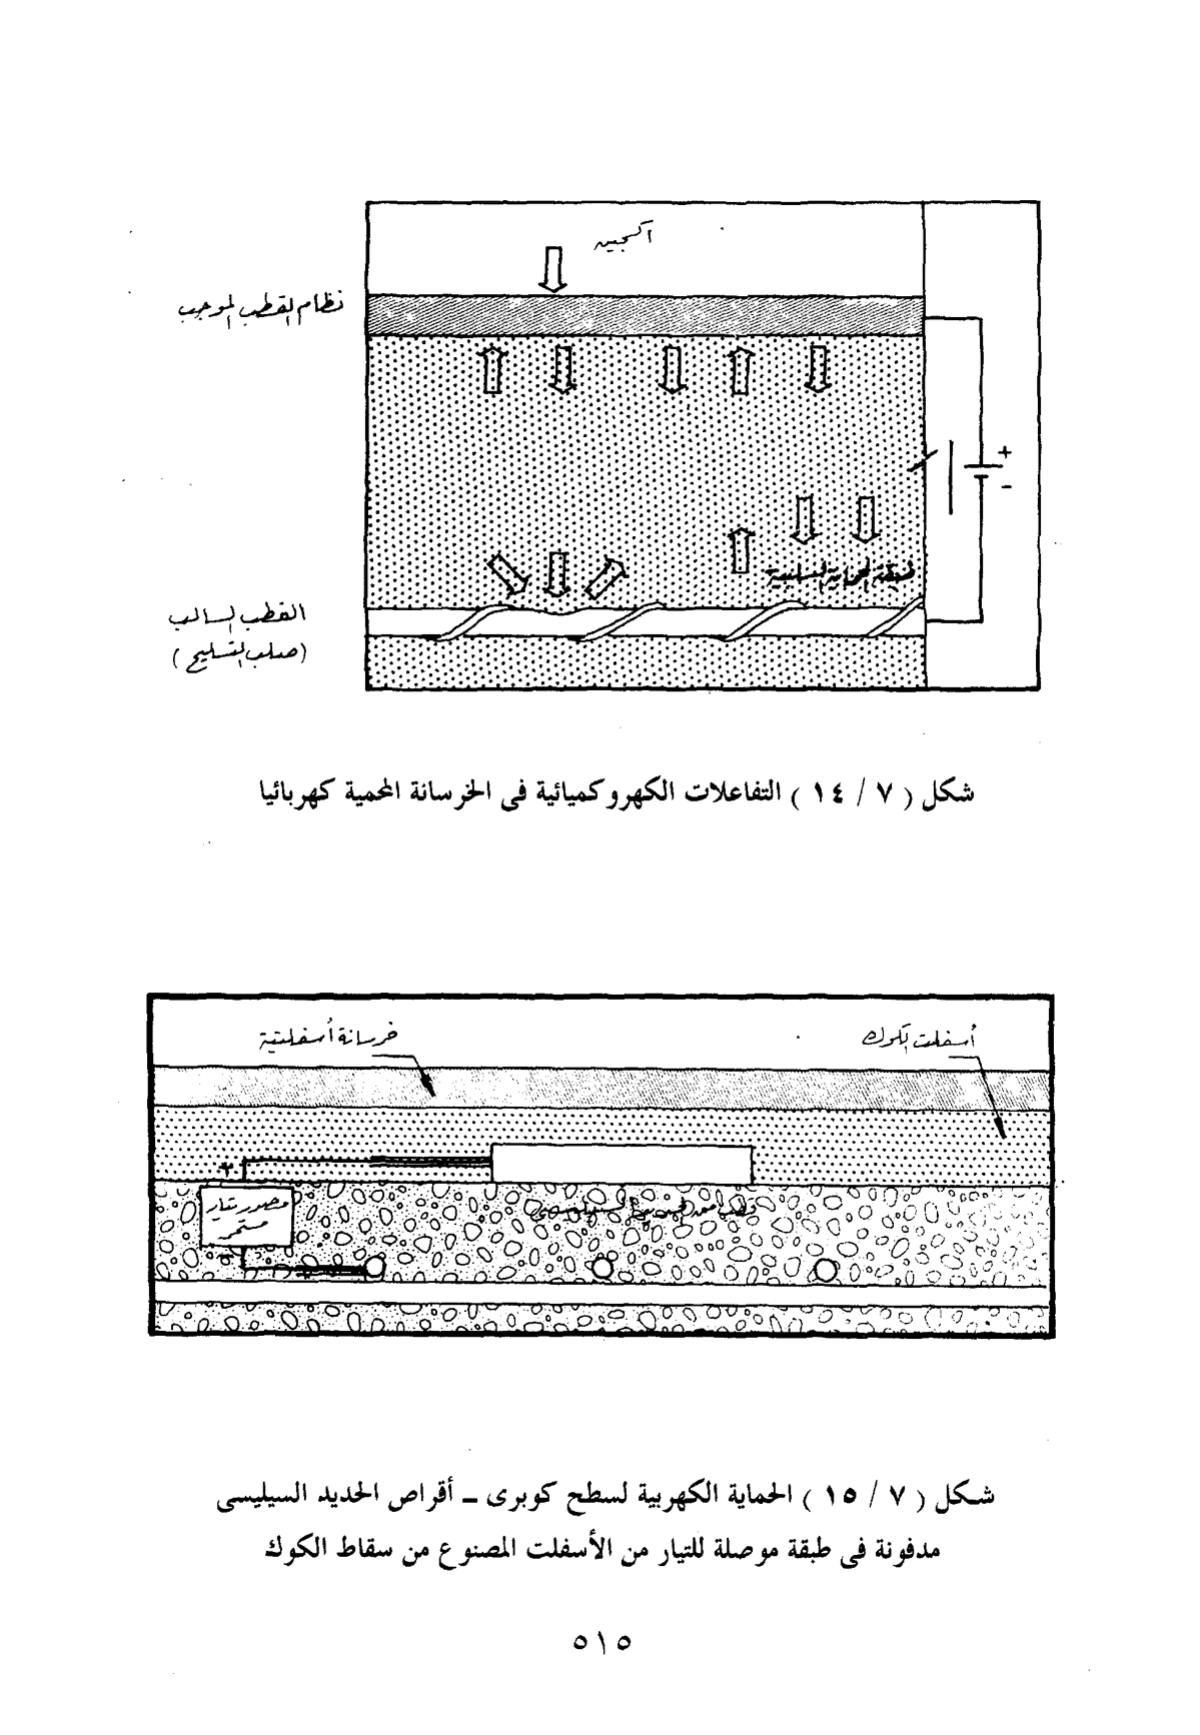 اكسجين
نظام القطب الموجب
+
-
طبقة الحماية السلبية
القطب السالب
(صلب التسليح)
شكل ( ٧ / ١٤ ) التفاعلات الكهروكميائية فى الخرسانة المحمية كهربائيا
خرسانة أسفلتية
أسفلت الكوك
+
مصدر تيار
مستمر
-
قطب من الحديد السيليسى
شكل ( ٧ / ١٥ ) الحماية الكهربية لسطح كوبرى ــ أقراص الحديد السيليسى
مدفونة فى طبقة موصلة للتيار من الأسفلت المصنوع من سقاط الكوك
٥١٥